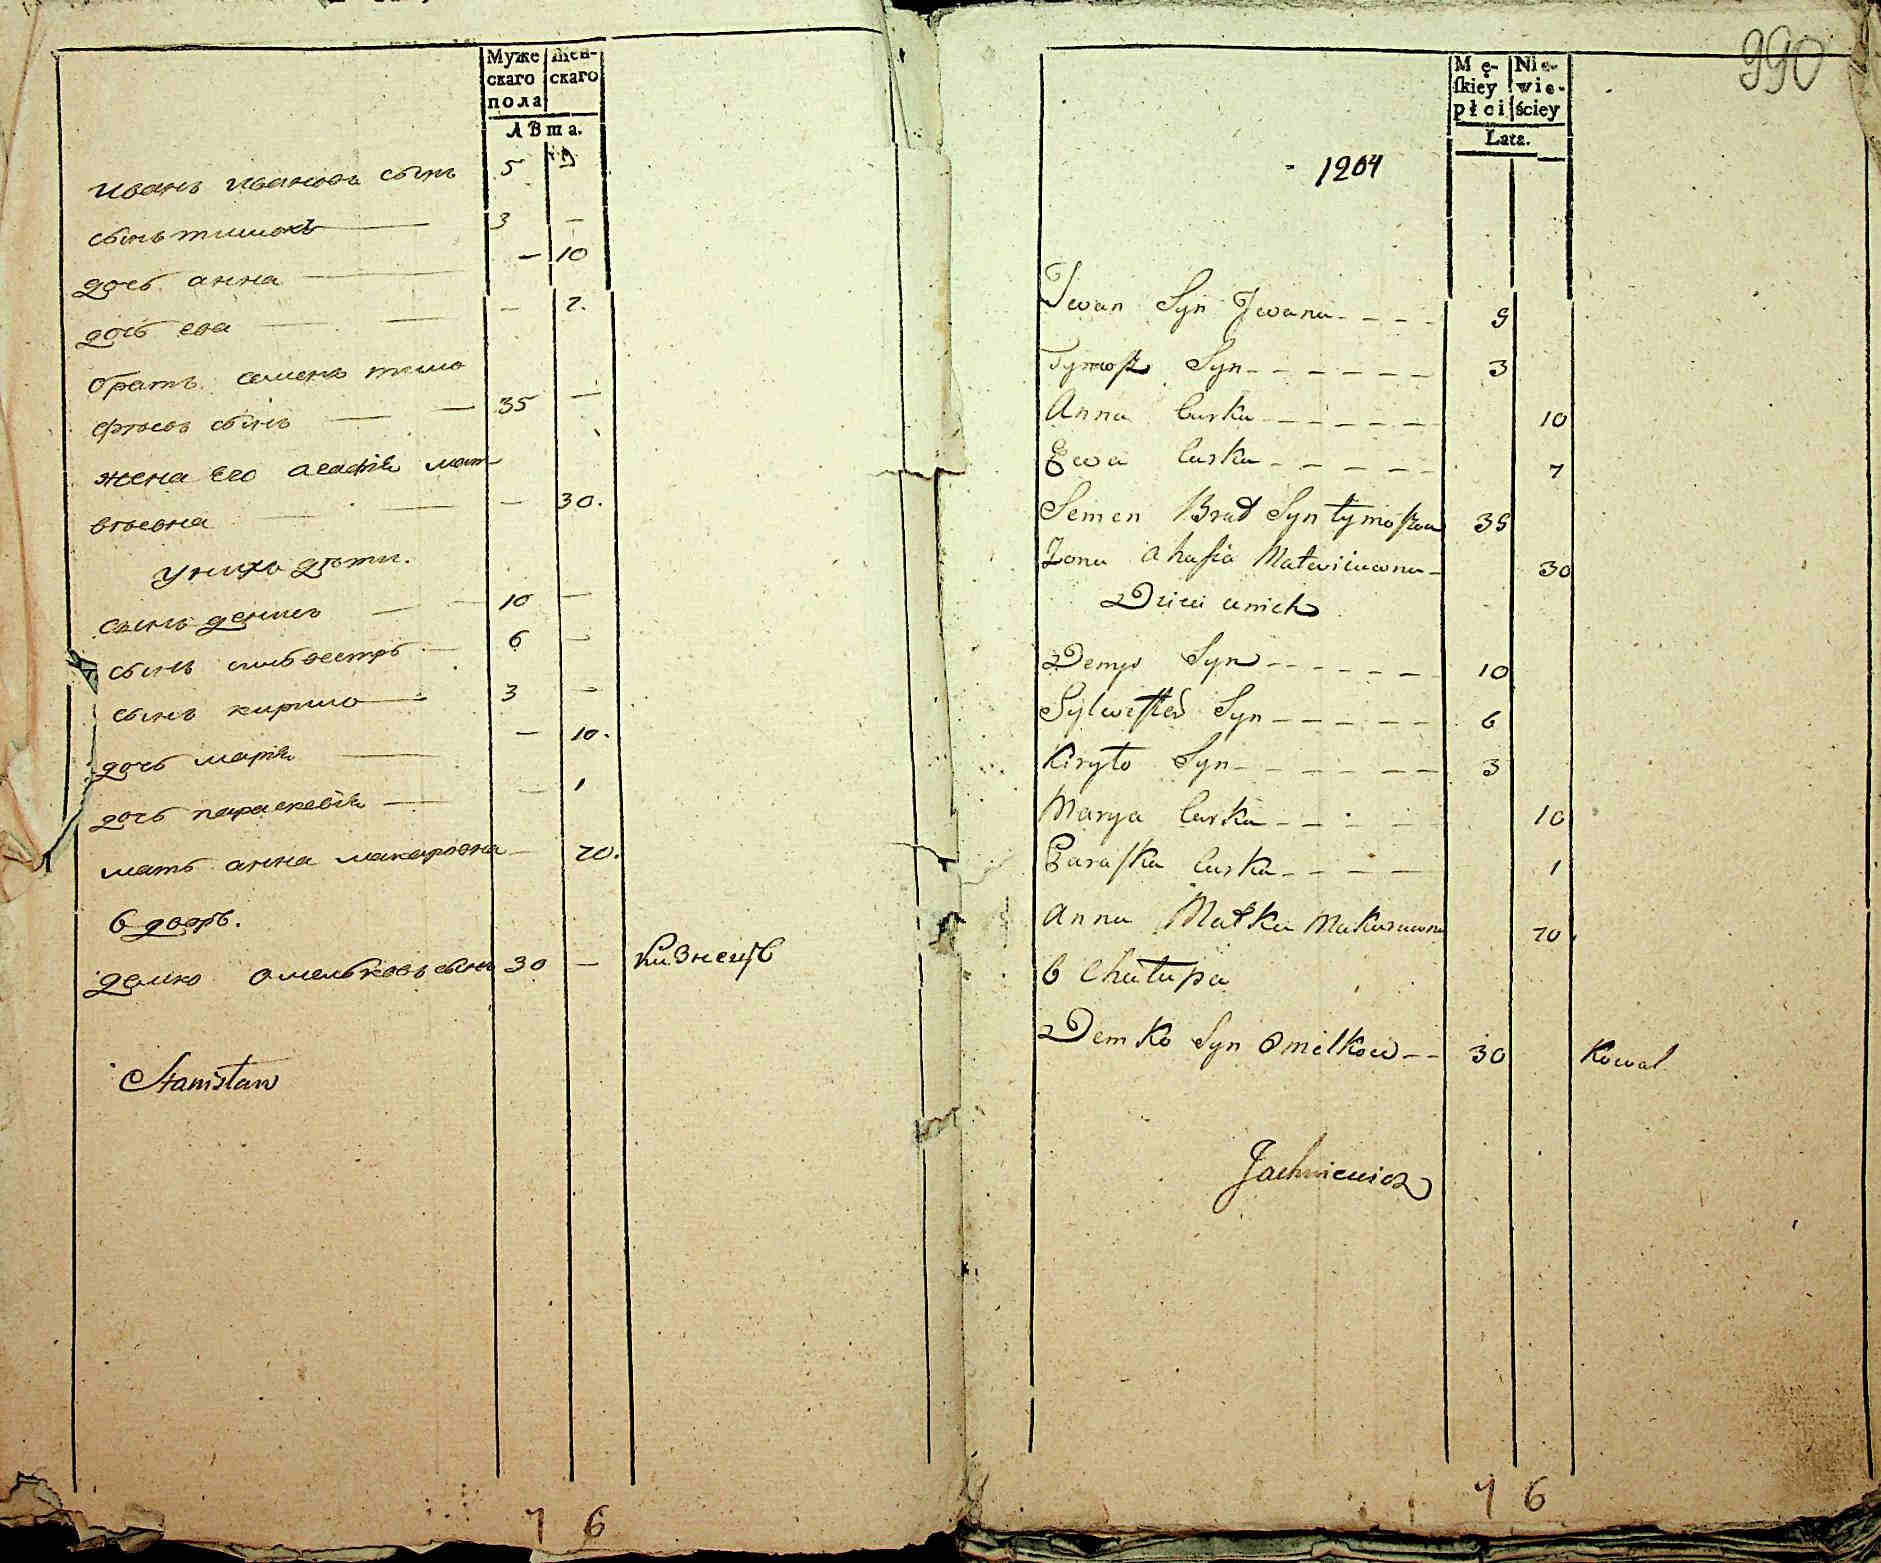 Муже Жен-
скаго скаго
пола
Лѣта.
Иванъ Ивановъ сынъ 5 —
сынъ тимошъ — 3 —
дочь анна — — 10
дочь ева — — — 7.
братъ семенъ тимо
фѣевъ сынъ — — 35 —
жена его агафія мат
вѣевна — — — 30.
у нихъ дѣти.
сынъ денисъ — — 10 —
сынъ сильвестръ — 6 —
сынъ кирило — 3 —
дочь марія — — 10.
дочь параскевія — — 1
мать анна макаровна — 70.
в дворѣ.
демко омельковъ сынъ 30 — кузнецъ
Stanisław
7 6
990
Mę- Nie-
ſkiey wie-
płci ściey
Lata.
1204
Jwan Syn Jwana - - - - 5
Tymosz Syn - - - - - - 3
Anna Curka - - - - - - 10
Ewa Curka - - - - - - 7
Semen Brat Syn tymoszow 35
Zona ahafia Matwiiowna - 30
Dzieci unich
Demys Syn - - - - - - 10
Sylwester Syn - - - - - - 6
Kiryło Syn - - - - - - 3
Marya Curka - - - - 10
Paraska Curka - - - - 1
Anna Matka Makarowna 70.
6 Chałupa
Demko Syn Omelkow - - 30 Kowal
Jachniewicz
7 6